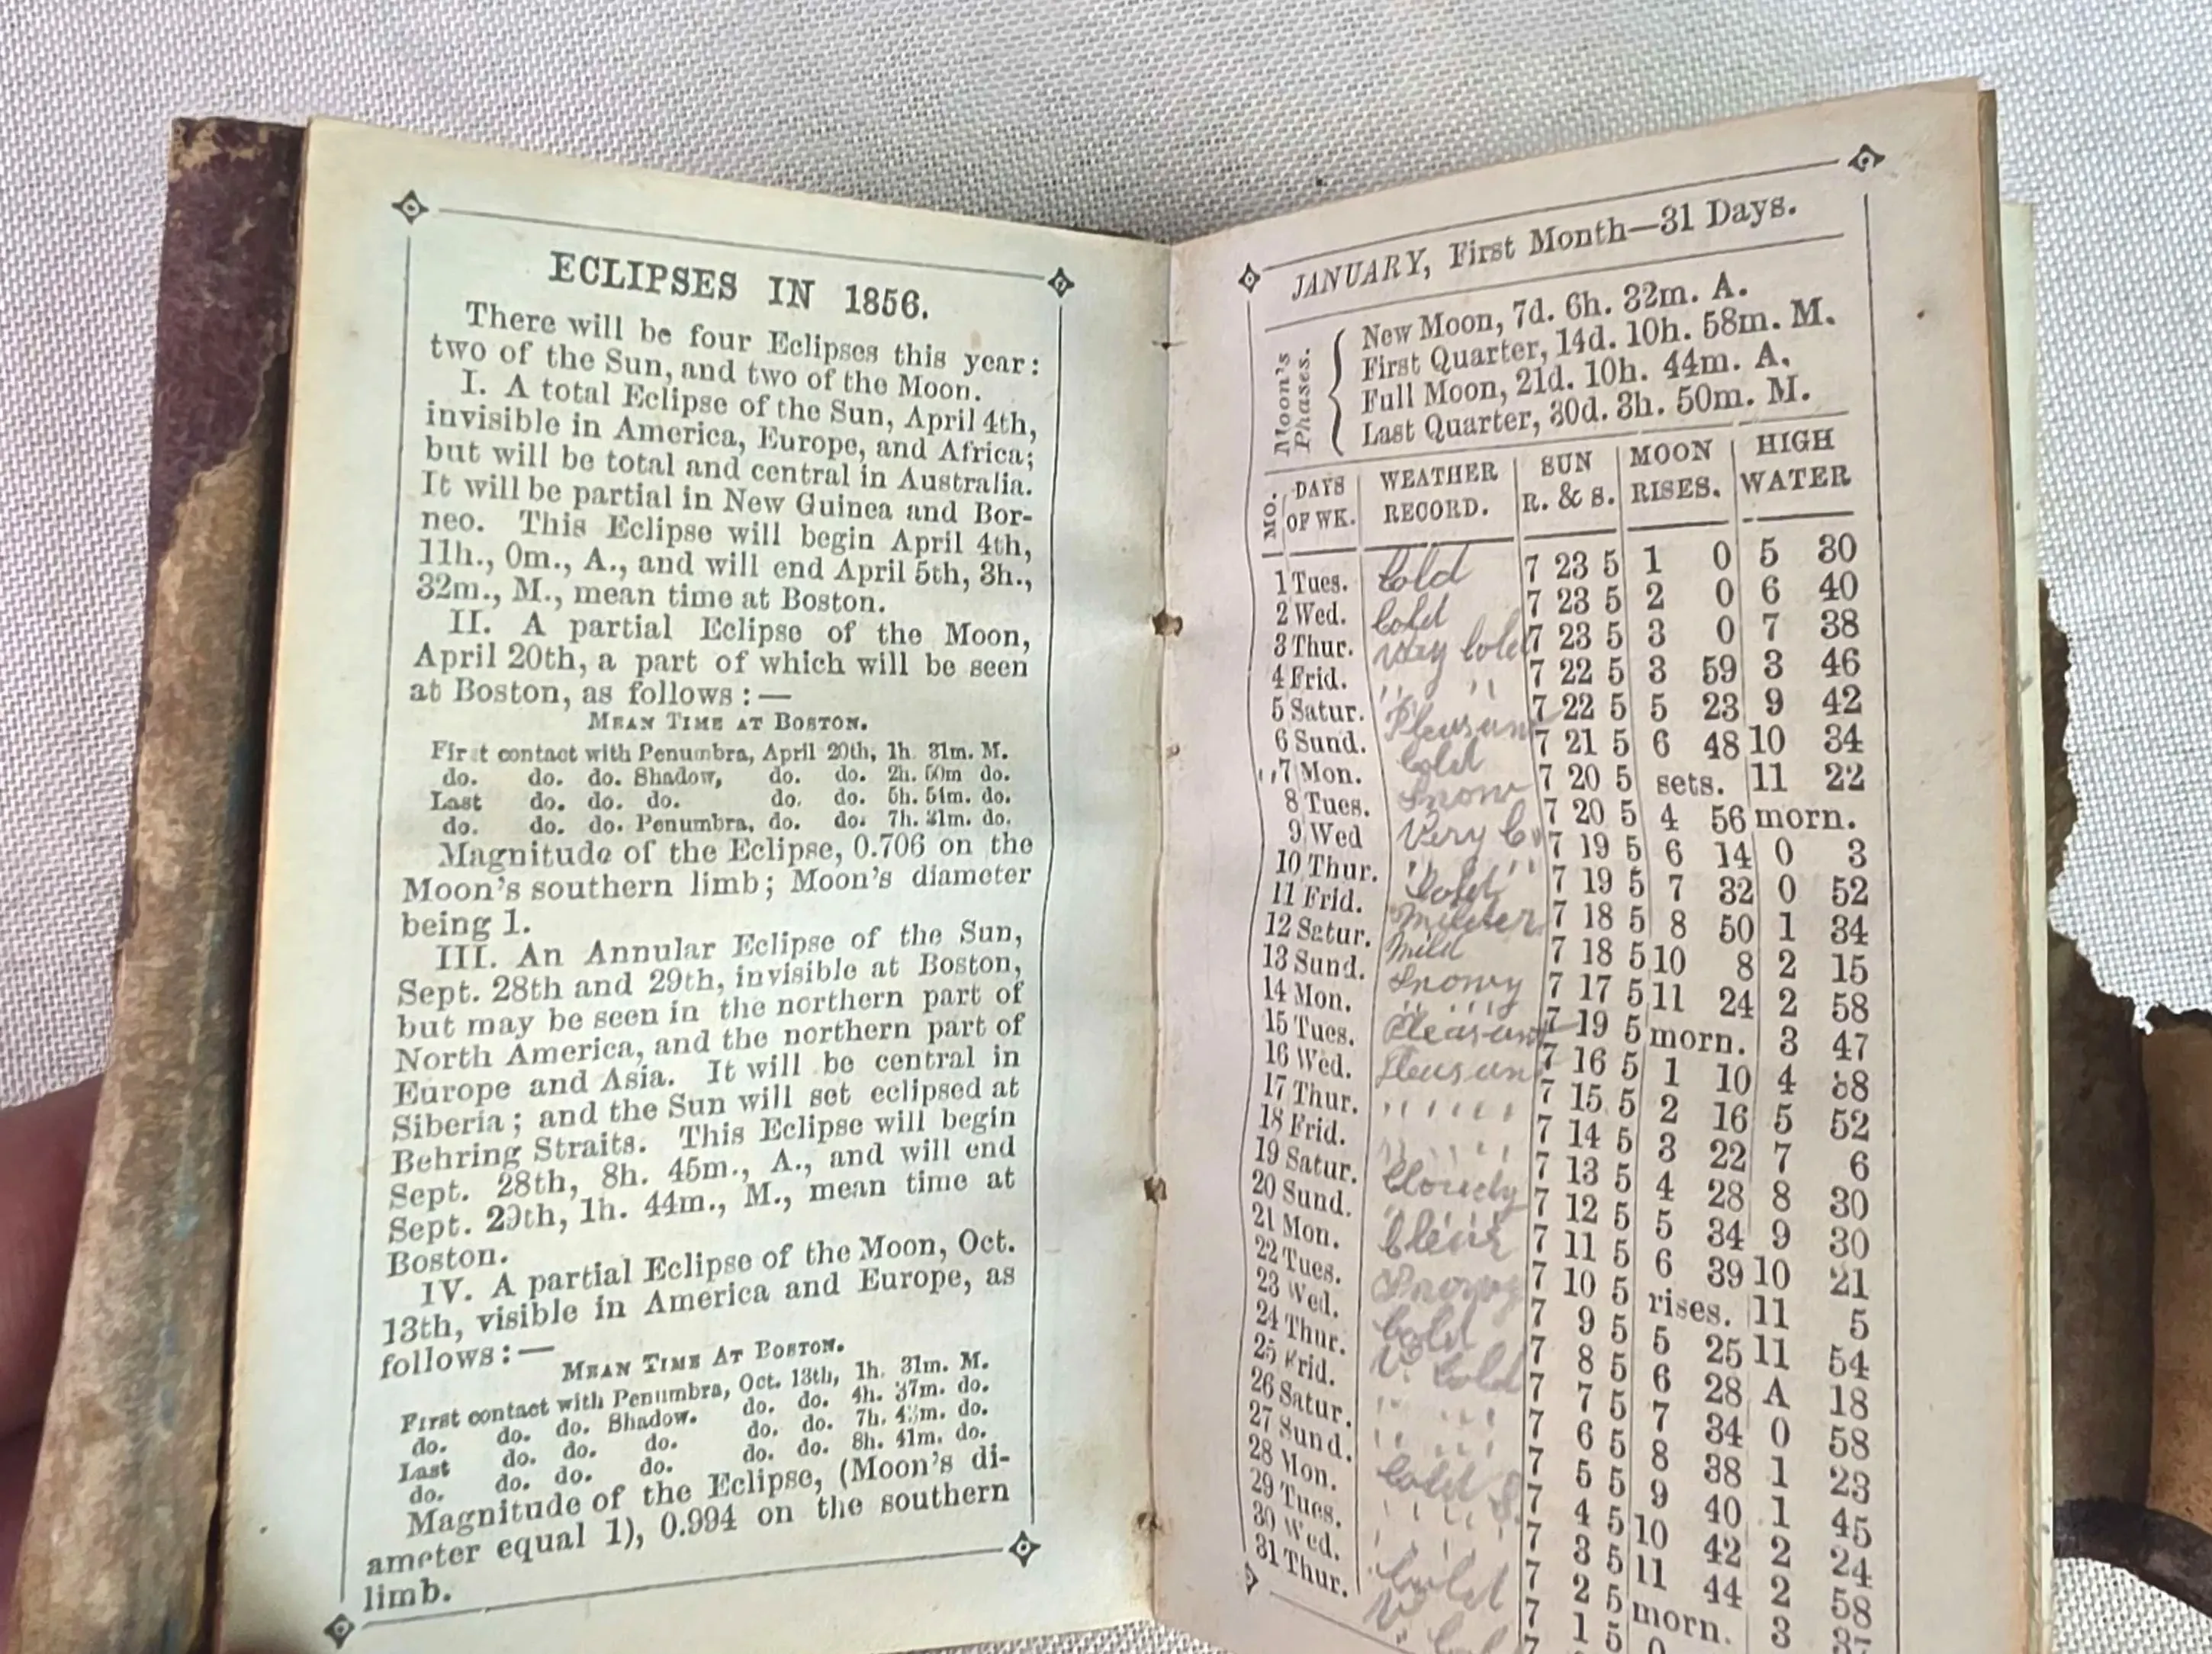 ECLIPSES IN 1856.
There will be four Eclipses this year:
two of the Sun, and two of the Moon.
I. A total Eclipse of the Sun, April 4th,
invisible in America, Europe, and Africa;
but will be total and central in Australia.
It will be partial in New Guinea and Bor-
neo. This Eclipse will begin April 4th,
11h., 0m., A., and will end April 5th, 3h.,
32m., M., mean time at Boston.
II. A partial Eclipse of the Moon,
April 20th, a part of which will be seen
at Boston, as follows :—
MEAN TIME AT BOSTON.
First contact with Penumbra, April 20th, 1h. 31m. M.
do. do. do. Shadow, do. do. 2h. 50m do.
Last do. do. do. do. do. 5h. 51m. do.
do. do. do. Penumbra, do. do. 7h. 31m. do.
Magnitude of the Eclipse, 0.706 on the
Moon's southern limb; Moon's diameter
being 1.
III. An Annular Eclipse of the Sun,
Sept. 28th and 29th, invisible at Boston,
but may be seen in the northern part of
North America, and the northern part of
Europe and Asia. It will be central in
Siberia; and the Sun will set eclipsed at
Behring Straits. This Eclipse will begin
Sept. 28th, 8h. 45m., A., and will end
Sept. 29th, 1h. 44m., M., mean time at
Boston.
IV. A partial Eclipse of the Moon, Oct.
13th, visible in America and Europe, as
follows :—
MEAN TIME AT BOSTON.
First contact with Penumbra, Oct. 13th, 1h. 31m. M.
do. do. do. Shadow. do. do. 4h. 37m. do.
Last do. do. do. do. do. 7h. m. do.
do. do. do. do. do. do. 8h. 41m. do.
Magnitude of the Eclipse, (Moon's di-
ameter equal 1), 0.994 on the southern
limb.
JANUARY, First Month—31 Days.
Moon's Phases.
New Moon, 7d. 6h. 32m. A.
First Quarter, 14d. 10h. 58m. M.
Full Moon, 21d. 10h. 44m. A.
Last Quarter, 30d. 3h. 50m. M.
MO. DAYS OF WK. WEATHER RECORD. SUN R. & S. MOON RISES. HIGH WATER
1 Tues. Cold 7 23 5 1 0 5 30
2 Wed. Cold 7 23 5 2 0 6 40
3 Thur. Very Cold 7 23 5 3 0 7 38
4 Frid. " " 7 22 5 3 59 3 46
5 Satur. Pleasant 7 22 5 5 23 9 42
6 Sund. Cold 7 21 5 6 48 10 34
7 Mon. Snow 7 20 5 sets. 11 22
8 Tues. Very 7 20 5 4 56 morn.
9 Wed " " 7 19 5 6 14 0 3
10 Thur. Cold 7 19 5 7 32 0 52
11 Frid. Milder 7 18 5 8 50 1 34
12 Satur. Mild 7 18 5 10 8 2 15
13 Sund. Snowy 7 17 5 11 24 2 58
14 Mon. " " 7 19 5 morn. 3 47
15 Tues. Pleasant 7 16 5 1 10 4 38
16 Wed. Pleasant 7 15 5 2 16 5 52
17 Thur. " " " 7 14 5 3 22 7 6
18 Frid. " " " 7 13 5 4 28 8 30
19 Satur. Cloudy 7 12 5 5 34 9 30
20 Sund. " " " 7 11 5 6 39 10 21
21 Mon. Clear 7 10 5 rises. 11 5
22 Tues. Snowy 7 9 5 5 25 11 54
23 Wed. Cold 7 8 5 6 28 A 18
24 Thur. V. Cold 7 7 5 7 34 0 58
25 Frid. " " " 7 6 5 8 38 1 23
26 Satur. " " " 7 5 5 9 40 1 45
27 Sund. Cold S. 7 4 5 10 42 2 24
28 Mon. " " " 7 3 5 11 44 2 58
29 Tues. " " 7 2 5 morn. 3
30 Wed. Cold 7 1 5
31 Thur. V. Cold 7